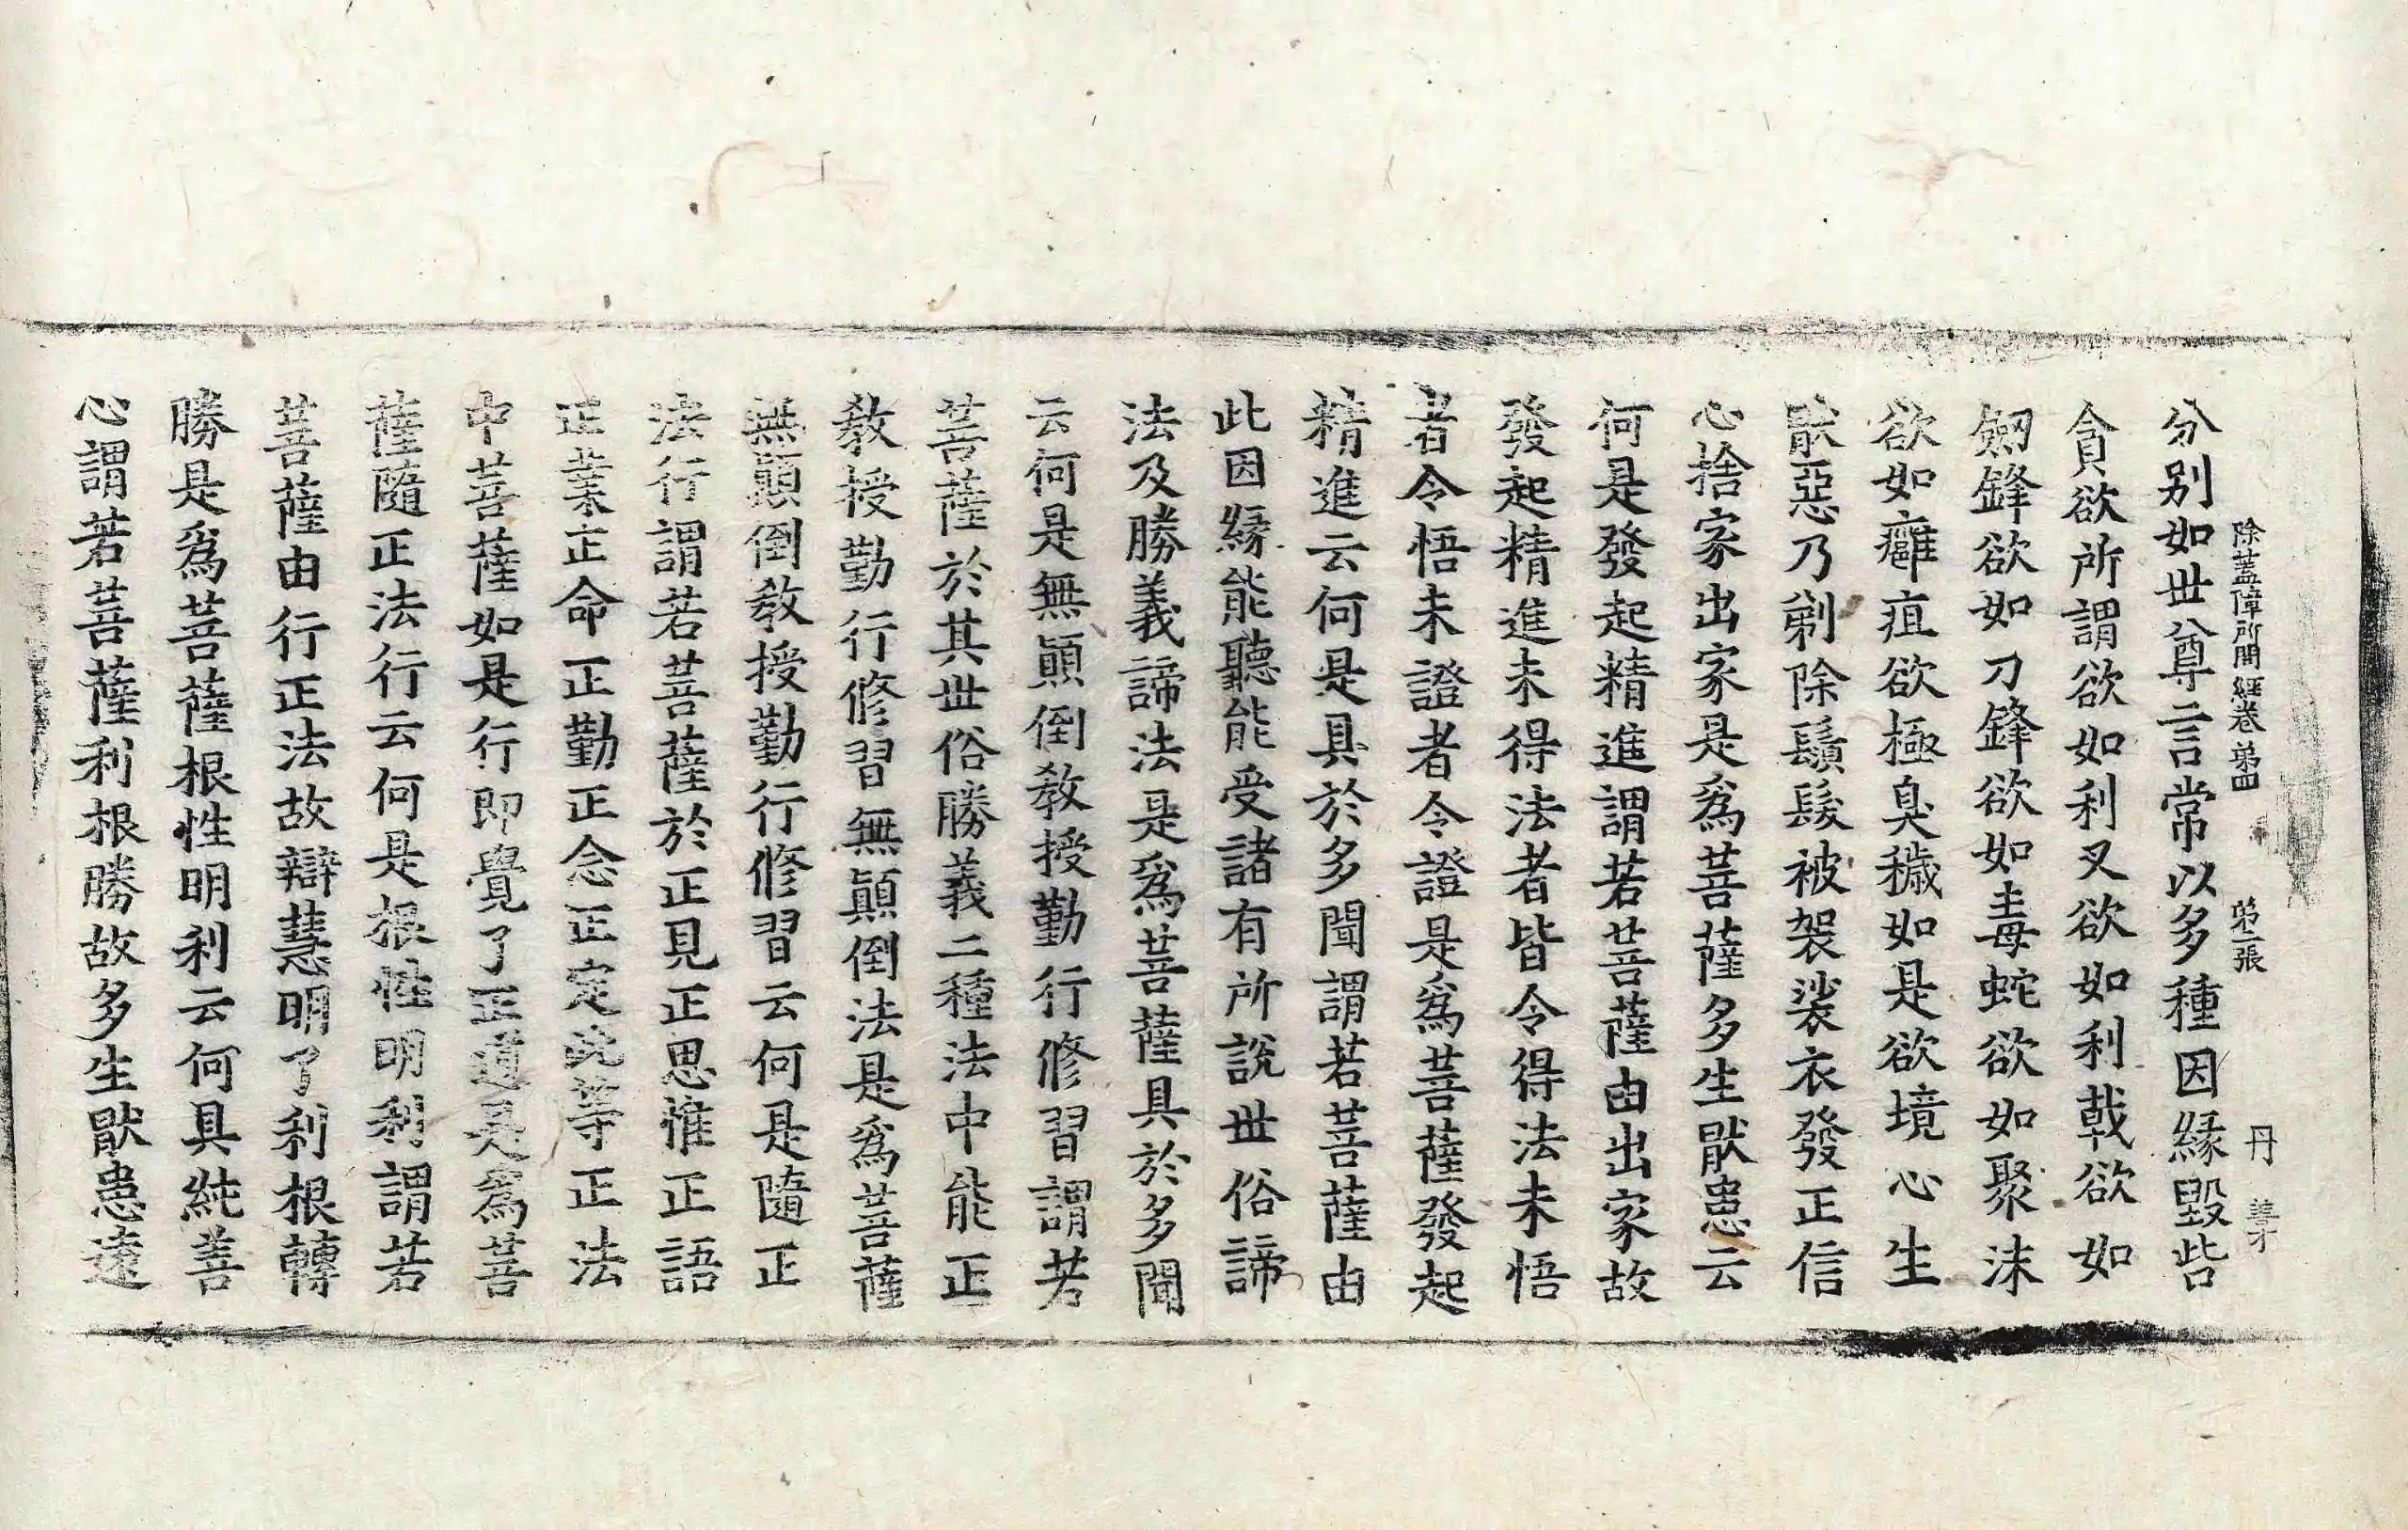 除蓋障所問經卷第四 第二張 丹
分別如世尊言常以多種因緣毀呰
貪欲所謂欲如利叉欲如利戟欲如
劒鋒欲如刀鋒欲如毒蛇欲如聚沫
欲如癰疽欲極臭穢如是欲境心生
猒惡乃剃除鬚髮被袈裟衣發正信
心捨家出家是爲菩薩多生猒患云
何是發起精進謂若菩薩由出家故
發起精進未得法者皆令得法未悟
者令悟未證者令證是爲菩薩發起
精進云何是具於多聞謂若菩薩由
此因緣能聽能受諸有所說世俗諦
法及勝義諦法是爲菩薩具於多聞
云何是無顚倒教授勤行修習謂若
菩薩於其世俗勝義二種法中能正
教授勤行修習無顚倒法是爲菩薩
無顚倒教授勤行修習云何是隨正
法行謂若菩薩於正見正思惟正語
正業正命正勤正念正定此等正法
中菩薩如是行即覺了正道是爲菩
薩隨正法行云何是根性明利謂若
菩薩由行正法故辯慧明了利根轉
勝是爲菩薩根性明利云何具純善
心謂若菩薩利根勝故多生猒患遠